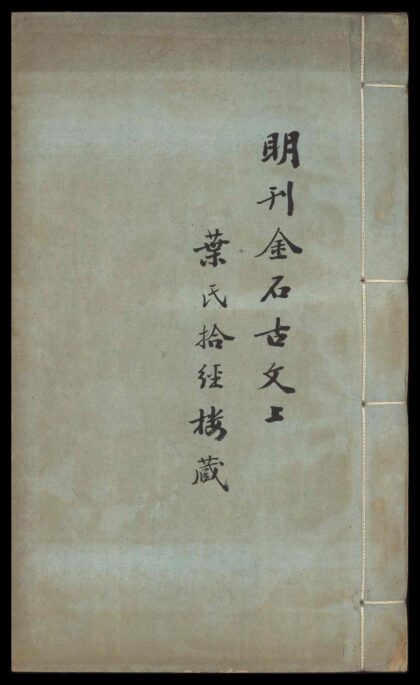 明刊金石古文上
葉氏拾經楼蔵